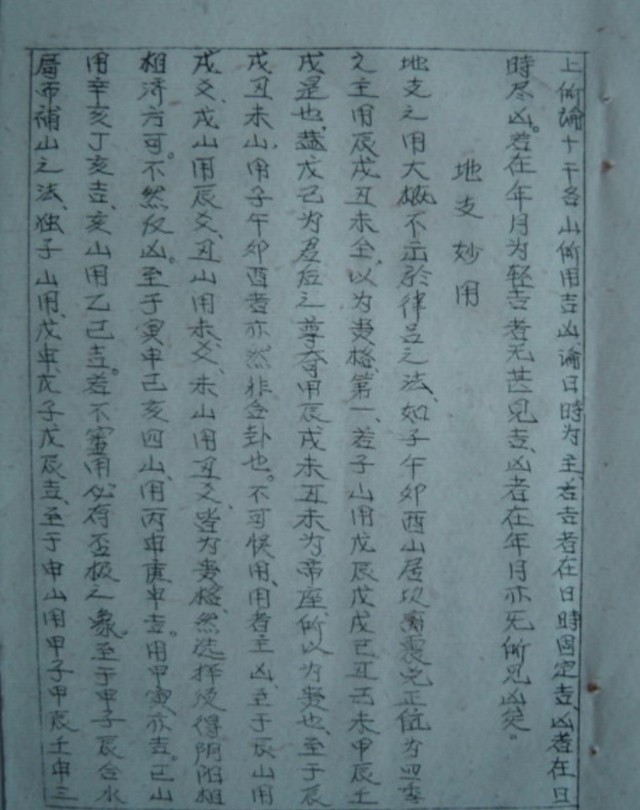 上所论十干各山所用吉凶论日时为主、若吉者在日時固定吉、凶者在日
時尽凶。若在年月为轻吉者无甚見吉、凶者在年月亦无所見凶災。
地支妙用
地支之用大概不示於律吕之法、如子午卯酉山居坎离震兑正位为四季
之主用辰戌丑未全，以为贵格第一、若子山用戊辰戊戌己丑己未甲辰壬
戌是也、盖戊己为君后之尊夺甲辰戌未丑未为帝座、所以为贵也、至于辰
戌丑未山、用子午卯酉者亦然非合卦也。不可悞用、用者主凶、至于辰山用
戌爻、戌山用辰爻、丑山用未爻、未山用丑爻、皆为贵格、然选择須得阴阳相
相济方可。不然反凶。至于寅申已亥四山、用丙申庚申吉。用甲寅亦吉。已山
用辛亥丁亥吉、亥山用乙己吉。若不審用、必有否极之象。至于甲子辰合水
層而補山之法、独子山用、戊申、戊子戊辰吉、至于申山用甲子甲辰壬申三